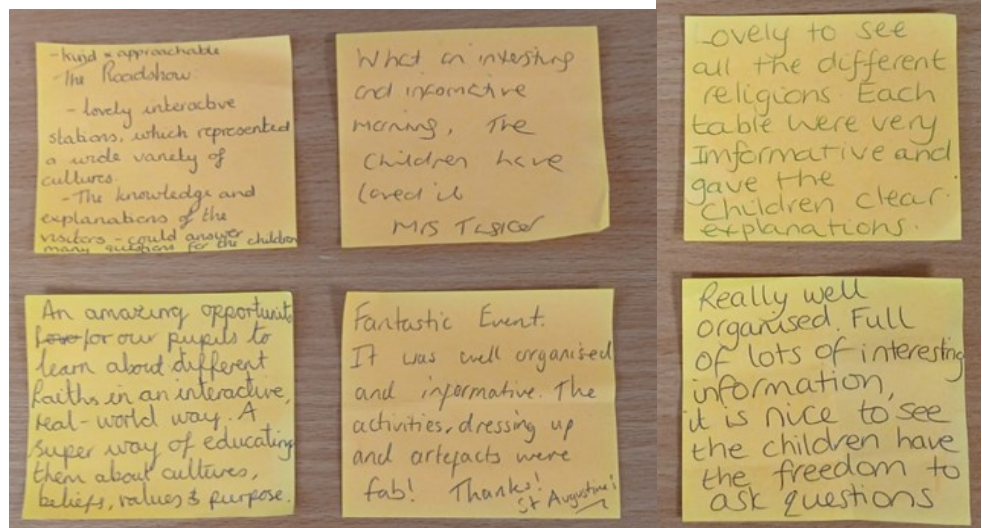 - kind & approachable
- The Roadshow
- lovely interactive
stations, which represented
a wide variety of
cultures.
- The knowledge and
explanations of the
visitors - could answer
many questions for the children
What an
and informative
morning, The
children have
loved it
Mrs
Lovely to see
all the different
religions. Each
table were very
Imformative and
gave the
children clear
explanations.
An amazing
for our pupils to
learn about different
faiths in an interactive,
real-world way. A
super way of educating
them about cultures,
beliefs, values & purpose.
Fantastic Event.
It was well organised
and informative. The
activities, dressing up
and artefacts were
fab! Thanks!
St Augustine's
Really well
organised. Full
of lots of interesting
information,
it is nice to see
the children have
the freedom to
ask questions